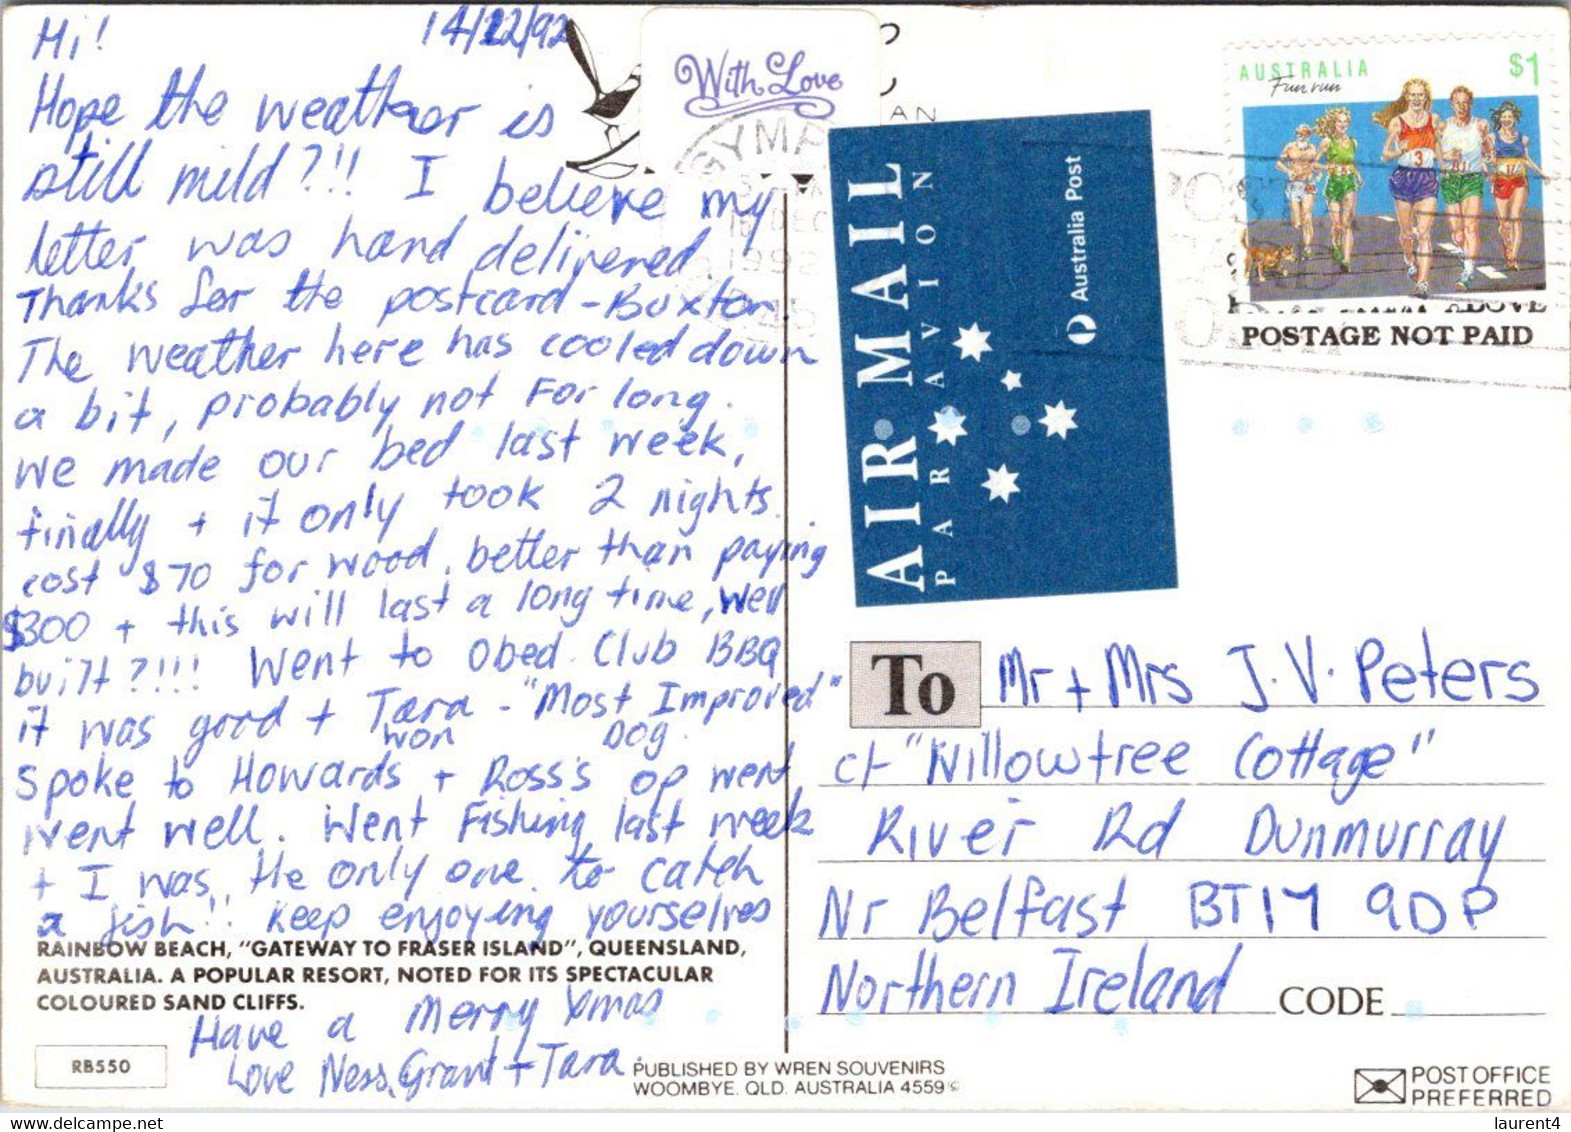 Hi!
14/12/92
Hope the weather is
still mild?!! I believe my
letter was hand delivered
Thanks for the postcard - Buxton.
The weather here has cooled down
a bit, probably not for long.
We made our bed last week,
finally + it only took 2 nights.
cost $70 for wood, better than paying
$300 + this will last a long time, well
built?!!! Went to Obed. Club BBQ
it was good + Tara - "Most Improved"
won Dog.
Spoke to Howards + Ross's op went
went well. Went Fishing last week
+ I was the only one to catch
a fish!! Keep enjoying yourselves
RAINBOW BEACH, "GATEWAY TO FRASER ISLAND", QUEENSLAND,
AUSTRALIA. A POPULAR RESORT, NOTED FOR ITS SPECTACULAR
COLOURED SAND CLIFFS.
Have a Merry Xmas
Love Ness, Grant + Tara.
RB550
PUBLISHED BY WREN SOUVENIRS
WOOMBYE. QLD. AUSTRALIA 4559 ©
With Love
AN
GYMP
16 DEC
1992
AIR MAIL
PAR AVION
Australia Post
AUSTRALIA $1
Fun run
3
POSTAGE NOT PAID
To Mr + Mrs J.V. Peters
c/- "Willowtree Cottage"
River Rd Dunmurray
Nr Belfast BT17 9DP
Northern Ireland CODE
POST OFFICE
PREFERRED
laurent4
www.delcampe.net